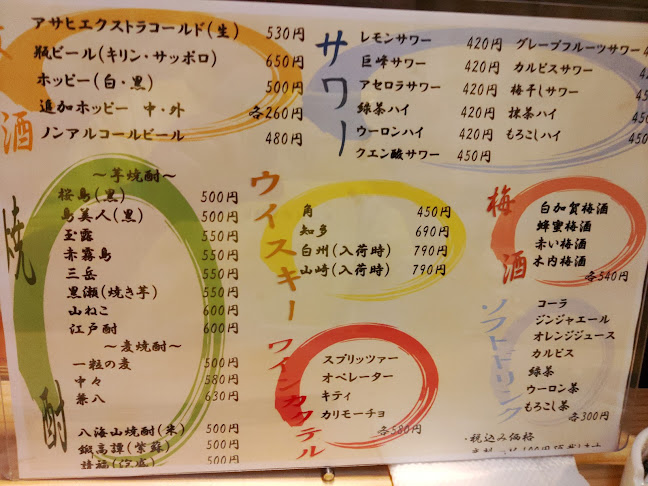 酒
アサヒエクストラコールド(生) 530円
瓶ビール(キリン・サッポロ) 650円
ホッピー(白・黒) 500円
追加ホッピー 中・外 各260円
ノンアルコールビール 480円
サワー
レモンサワー 420円 グレープフルーツサワー
巨峰サワー 420円 カルピスサワー
アセロラサワー 420円 梅干しサワー
緑茶ハイ 420円 抹茶ハイ
ウーロンハイ 420円 もろこしハイ
クエン酸サワー 450円
焼酎
～芋焼酎～
桜島(黒) 500円
島美人(黒) 500円
玉露 550円
赤霧島 550円
三岳 550円
黒瀬(焼き芋) 550円
山ねこ 600円
江戸酎 600円
～麦焼酎～
一粒の麦 500円
中々 580円
兼八 630円
八海山焼酎(米) 500円
鍛高譚(紫蘇) 500円
500円
ウイスキー
角 450円
知多 690円
白州(入荷時) 790円
山崎(入荷時) 790円
ワインカクテル
スプリッツァー
オペレーター
キティ
カリモーチョ
各580円
梅酒
白加賀梅酒
蜂蜜梅酒
赤い梅酒
木内梅酒
各540円
ソフトドリンク
コーラ
ジンジャエール
オレンジジュース
カルピス
緑茶
ウーロン茶
もろこし茶
各300円
・税込み価格